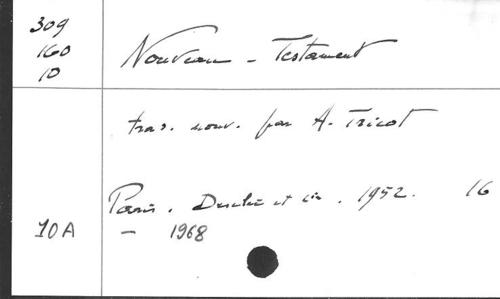 309
160
10
Nouveau - Testament
tra . nouv. par A. Tricot
Paris . Desclée et Cie . 1952. 16
10A - 1968